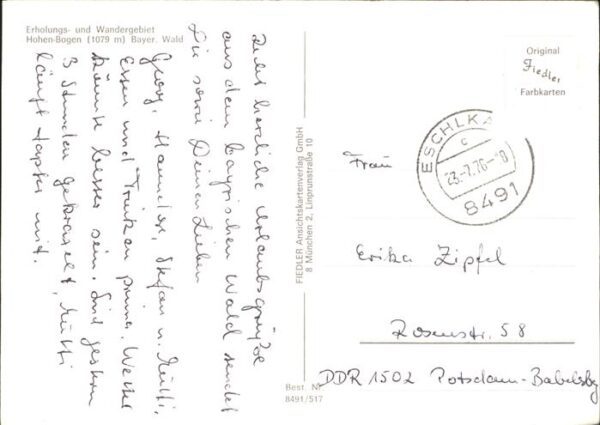 Erholungs- und Wandergebiet
Hohen-Bogen (1079 m) Bayer. Wald
Recht herzliche Urlaubsgrüße
aus dem bayrischen Wald sendet
Dir sowie Deinen Lieben
Georg, Hannelore, Stefan u. Mutti,
Essen und Trinken prima, Wetter
könnte besser sein. Sind gestern
3 Stunden gekraxelt, Mutti
läuft tapfer mit.
FIEDLER Ansichtskartenverlag GmbH
8 München 2, Linprunstraße 10
Best. Nr.
8491/517
Original
Fiedler
Farbkarten
ESCHLKA
c
23.-7.76-18
8491
Frau
Erika Zipfel
Rosenstr. 58
DDR 1502 Potsdam-Babelsbg